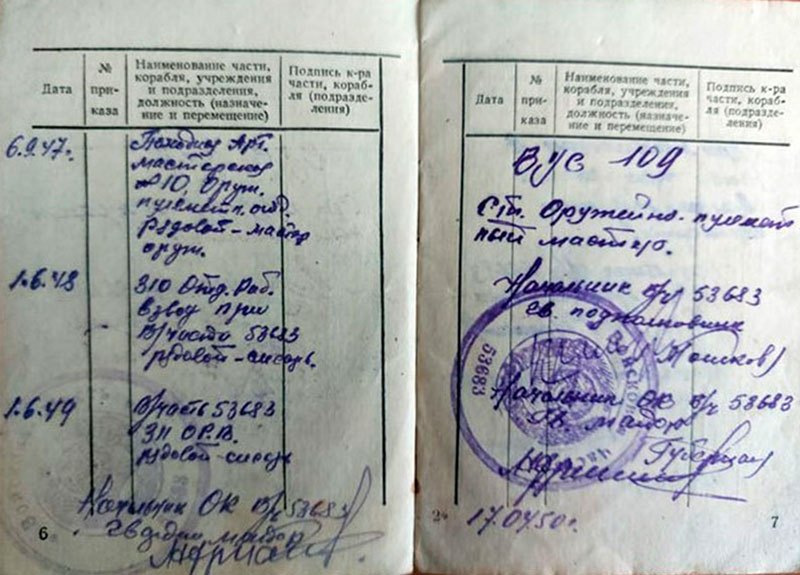 Дата
№
при-
каза
Наименование части,
корабля, учреждения
и подразделения,
должность (назначе-
ние и перемещение)
Подпись к-ра
части, кораб-
ля (подразде-
ления)
6.9.47г.
Походная Арт.
мастерская
№10, Оруж.
пулеметн. отд.
рядовой-мастер
оруж.
1.6.48
310 Отд. Раб.
взвод при
В/части 53683
рядовой-слесарь.
1.6.49
В/часть 53683
311 О.Р.В.
рядовой-слесарь
Начальник ОК В/ч 53683
гвардии майор
6
Дата
№
при-
каза
Наименование части,
корабля, учреждения
и подразделения,
должность (назначе-
ние и перемещение)
Подпись к-ра
части, кораб-
ля (подразде-
ления)
ВУС 109
Ст. Оружейно-пулемет
ный мастер.
Начальник В/ч 53683
гв. подполковник
(Мошков)
53683
Начальник ОК В/ч 53683
гв. майор
17.04.50г.
2*
7